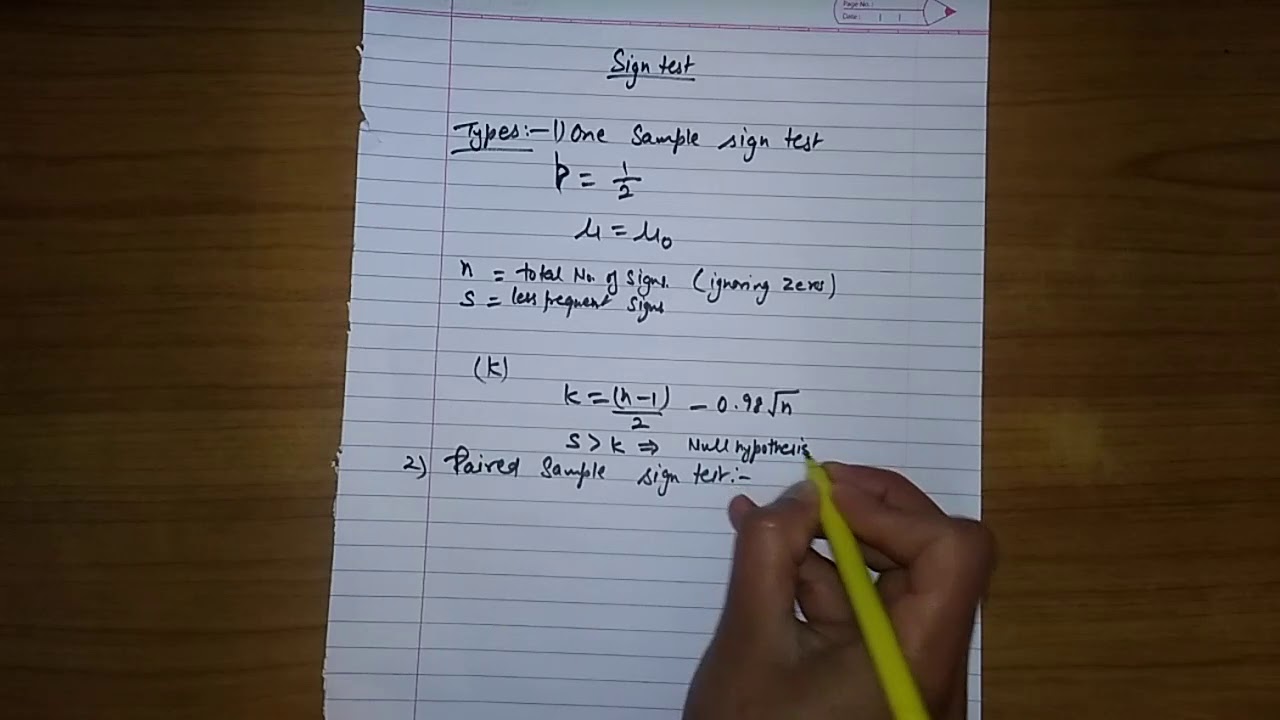 Page No.:
Date:
Sign test
Types:- 1) One Sample sign test
p = 1/2
μ = μ₀
n = total No. of signs. (ignoring zeros)
S = less frequent signs
(k)
k = (n-1)/2 - 0.98√n
S > k ⇒ Null hypothesis
2) Paired Sample sign test:-